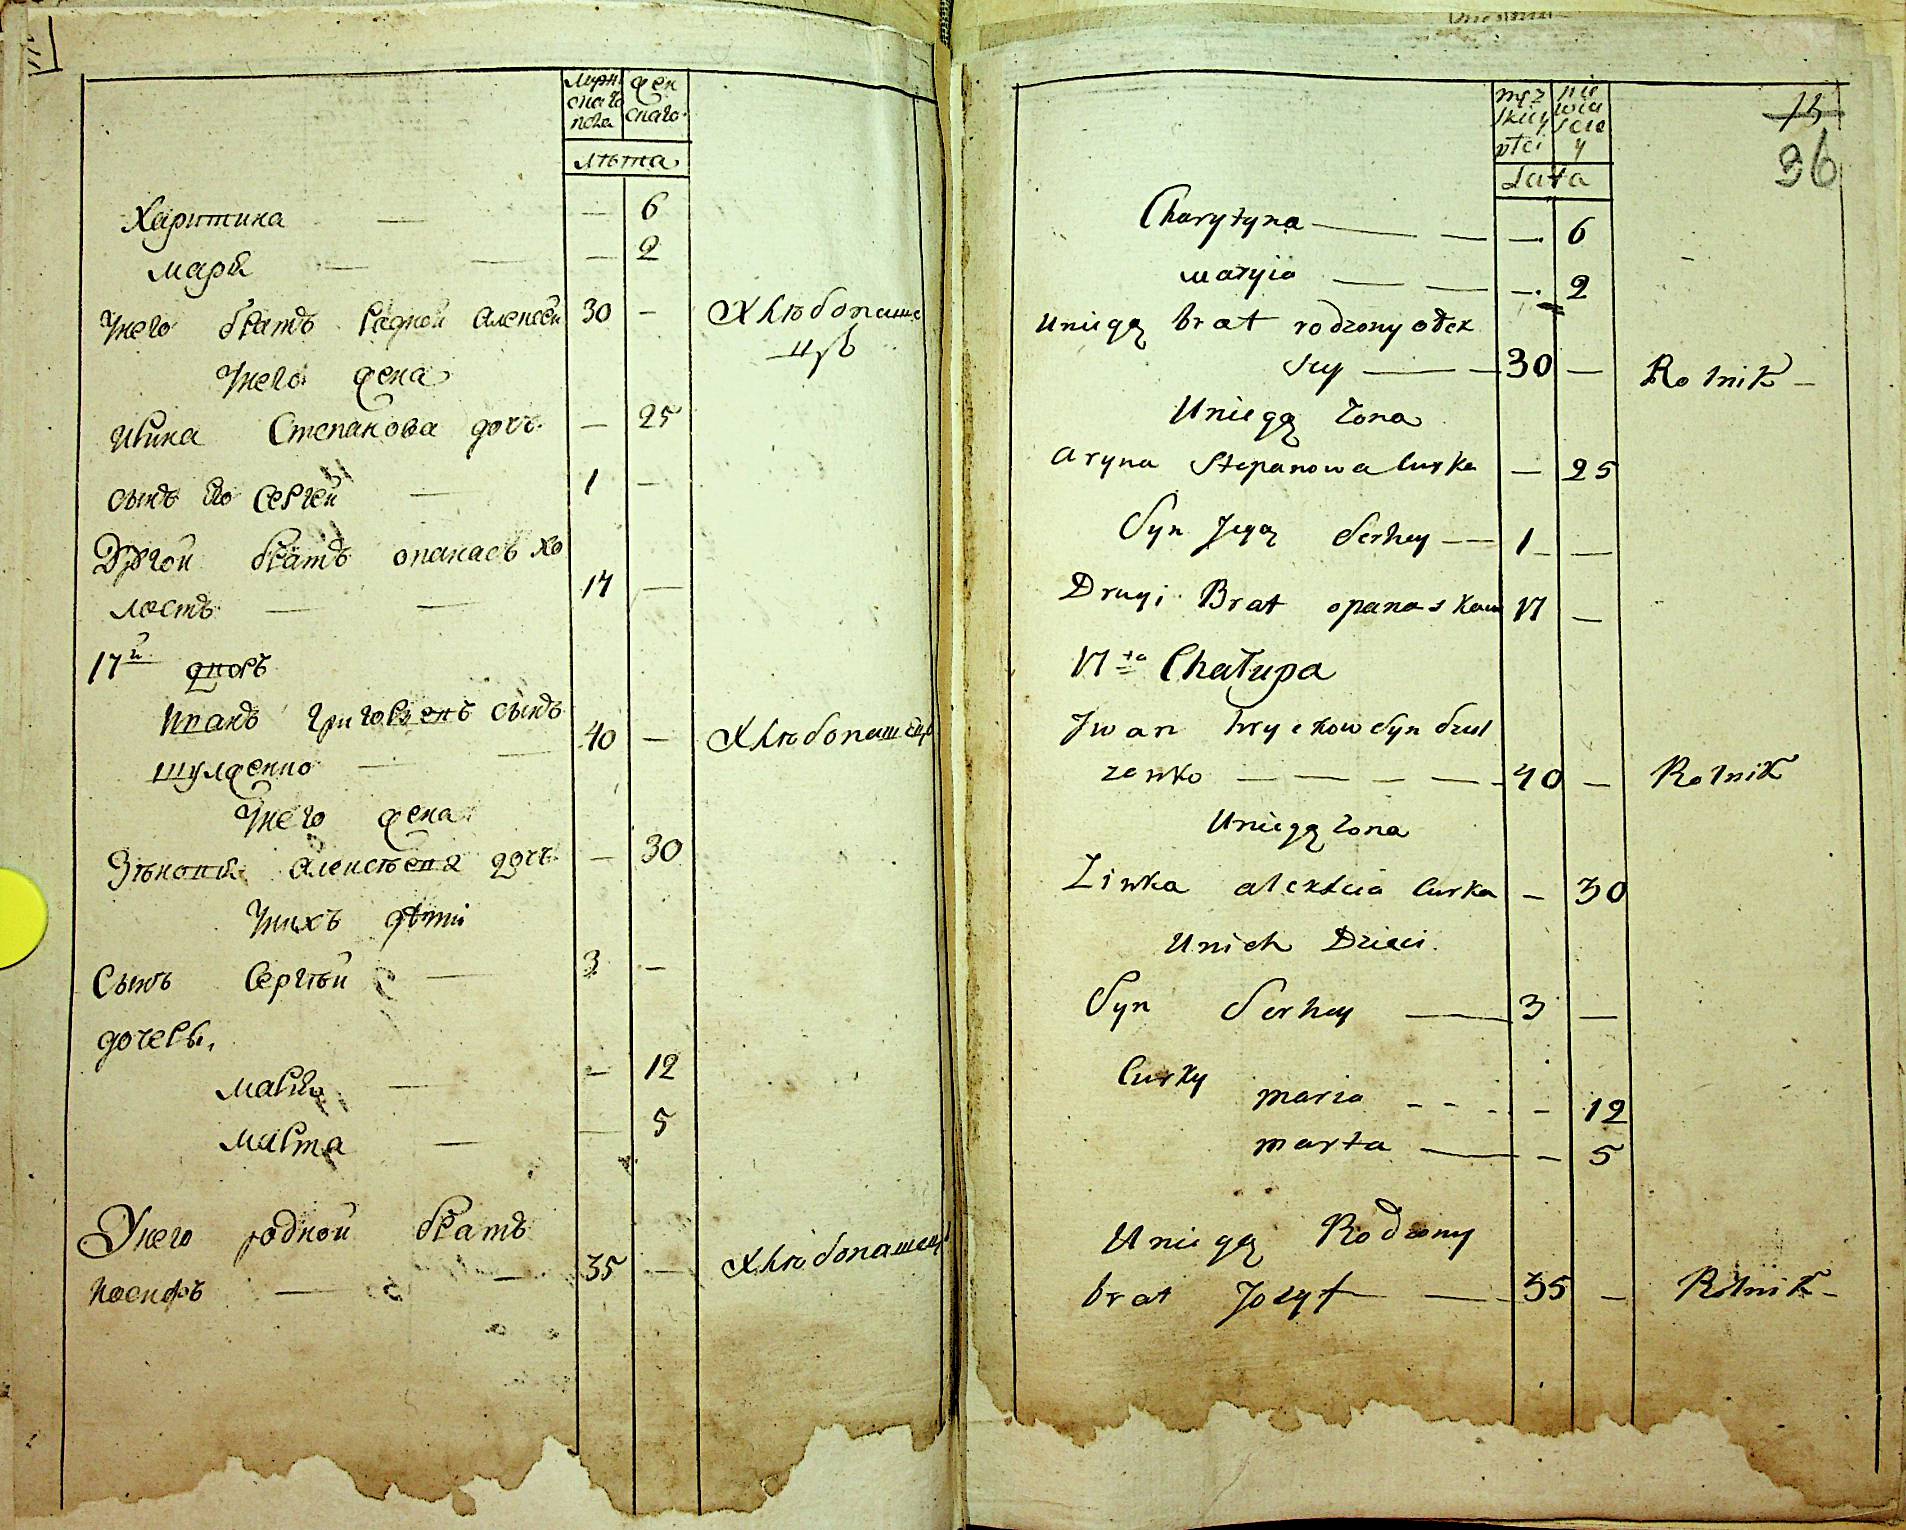 мужескаго пола
женскаго
лѣта
Харитина — — 6
Марія — — — 2
У него братъ родной Алексѣй 30 — Хлѣбопаше
цъ
У него жена
Ирина Степанова дочь — 25
сынъ его Сергей — 1 —
Другой братъ Опанасъ хо
лостъ — — 17 —
17й дворъ
Иванъ Григорьевъ сынъ
Шулженко — 40 — Хлѣбопашецъ
У него жена
Зѣновія Алексѣева дочь — 30
У нихъ дѣти
Сынъ Сергѣй — 3 —
дочери,
Марія — — 12
Марта — — 5
У него родной братъ
Иосифъ — — 35 — Хлѣбопашецъ
15
36
męz
skiey
płci
nie
wia
scie
y
Lata
Charytyna — — — 6
Maryia — — — 2
Uniegą brat rodzony ołex
sey — — 30 — Rolnik —
Uniegą żona
Aryna Stepanowa Curka — 25
Syn Jegą Serhey — — 1 —
Drugi Brat opanas Kaw 17 —
17ta Chałupa
Jwan hryckow Syn Szul
zenko — — — — 40 — Rolnik
Uniegą żona
Zinka alexiia Curka — 30
Unich Dzieci.
Syn Serhey — 3 —
Curky
maria - - - — 12
marta — — 5
Uniegą Rodzony
brat Jozyf — — 35 — Rolnik —